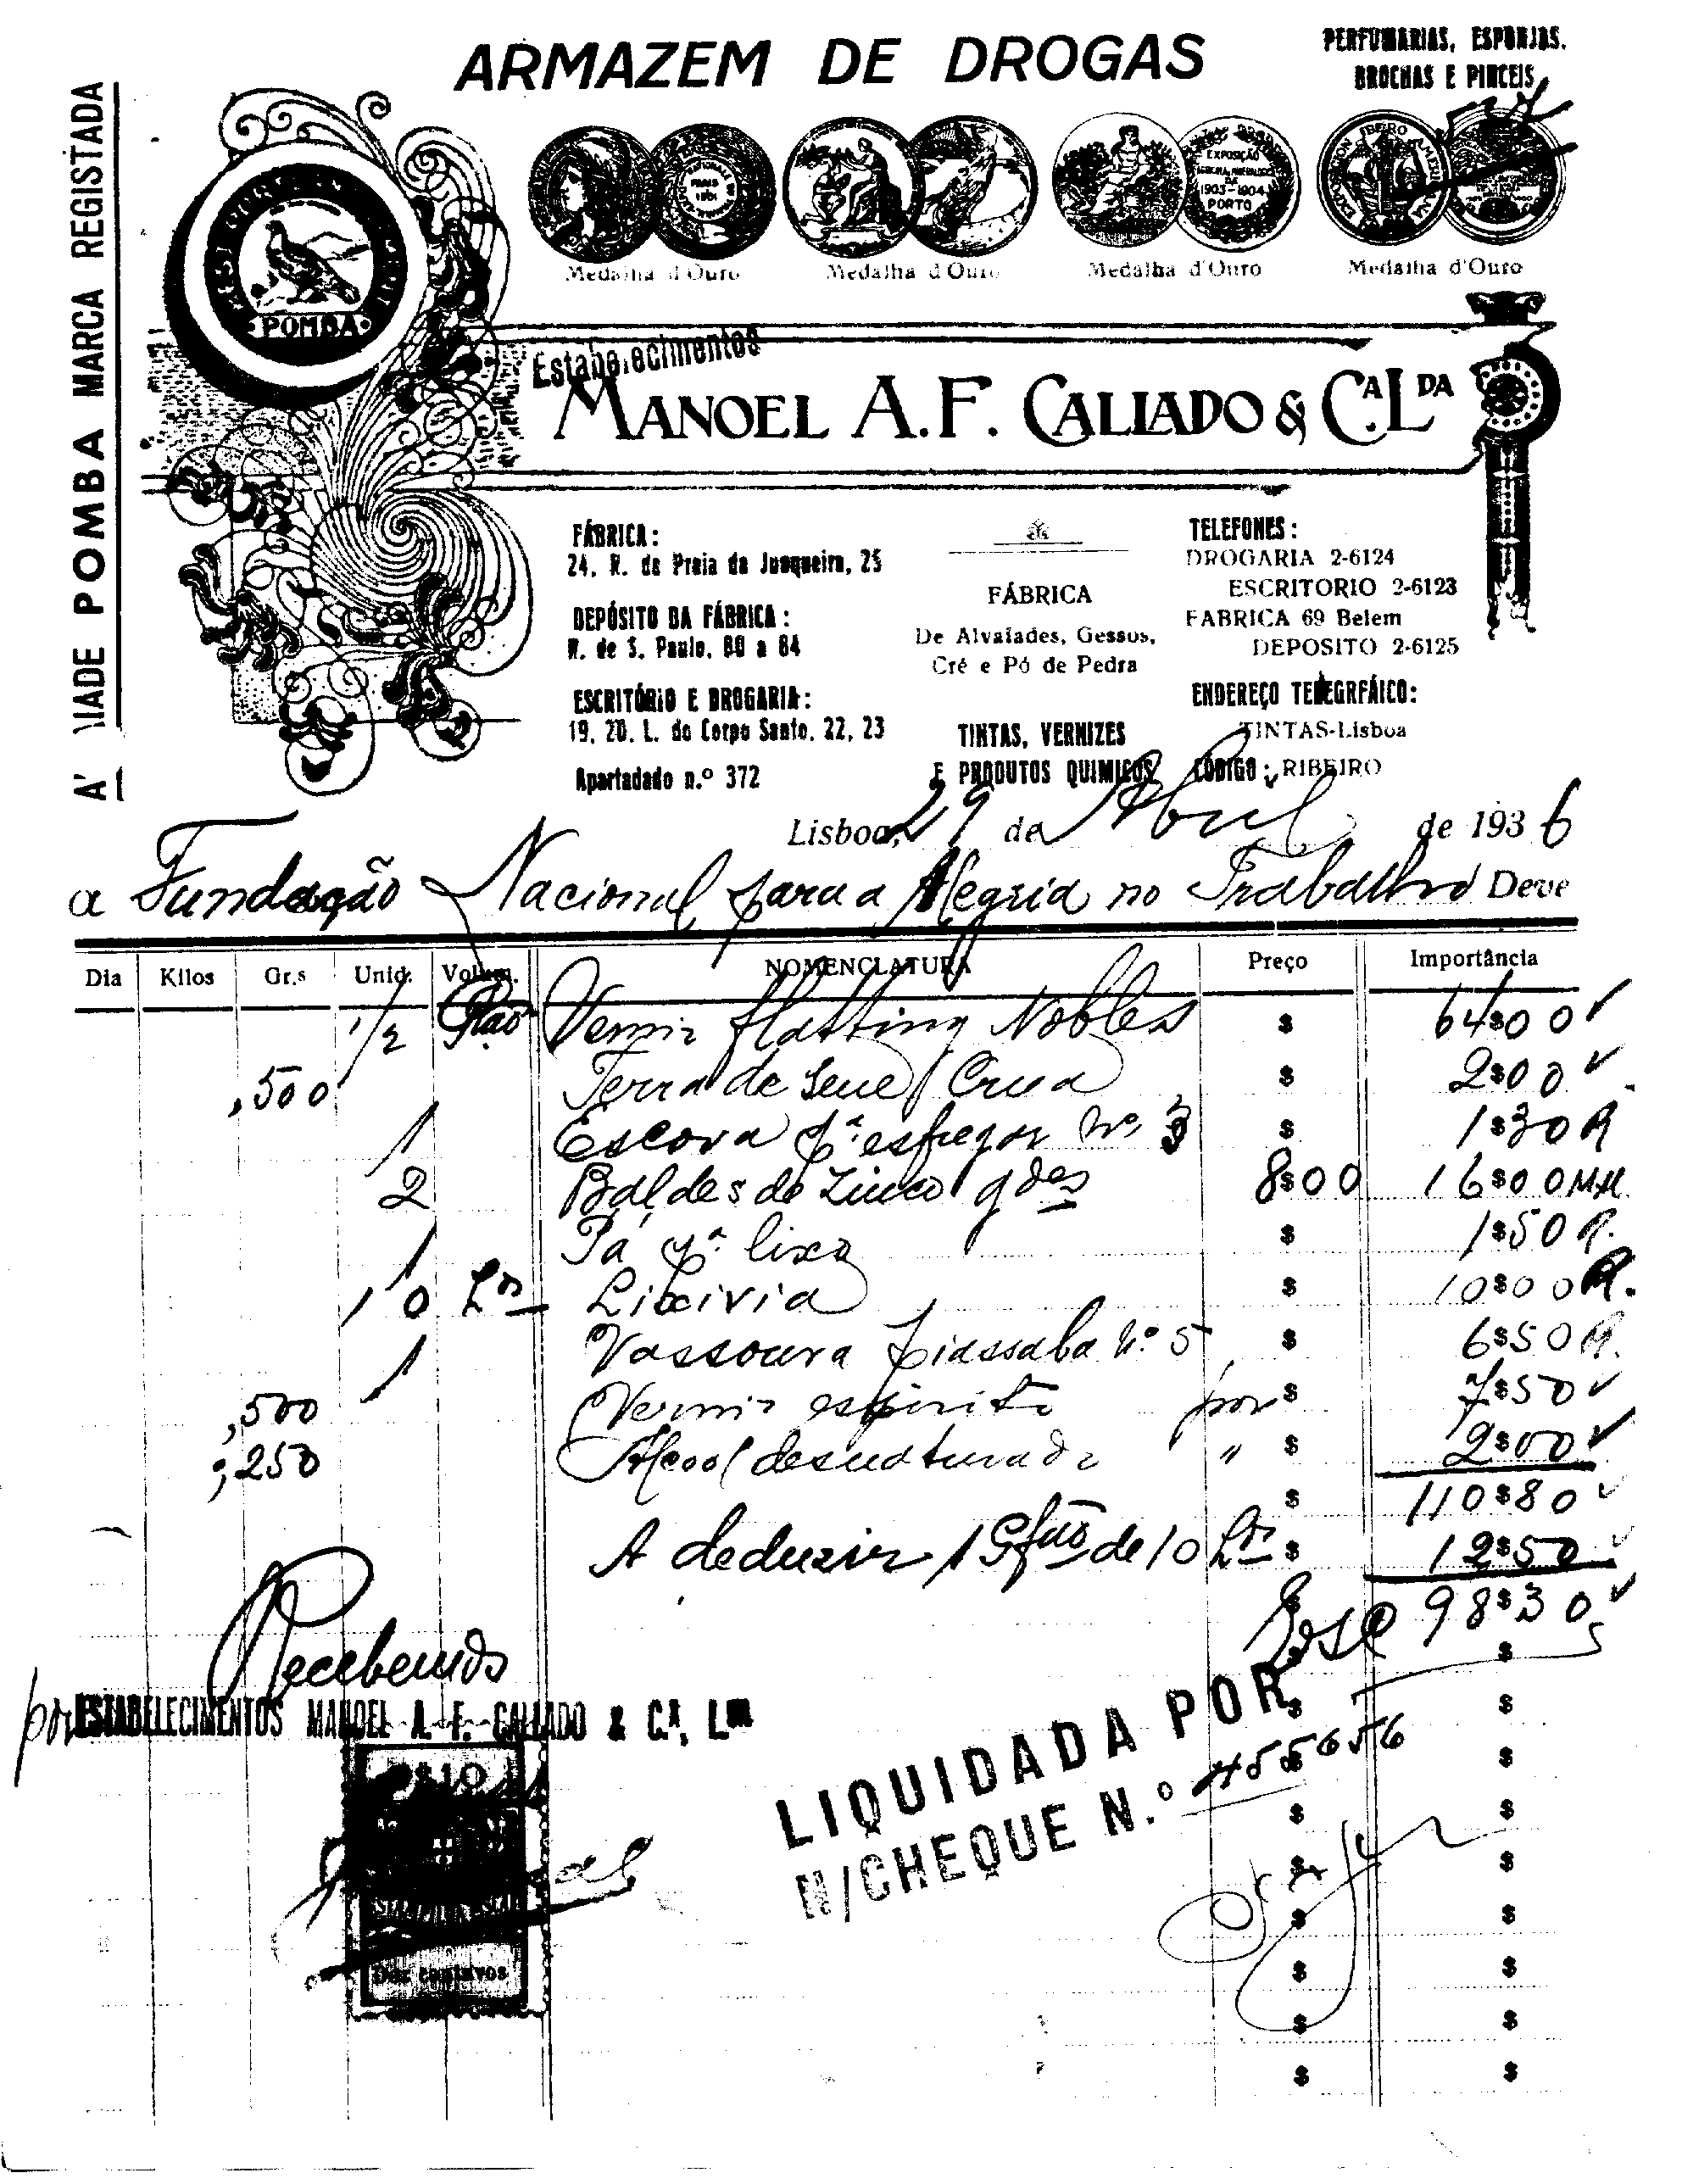 ARMAZEM DE DROGAS
PERFUMARIAS, ESPONJAS,
BROCHAS E PINCEIS
A' IADE POMBA MARCA REGISTADA
POMBA
EXPOSIÇÃO
1903-1904
PORTO
Medalha d'Ouro
Medalha d'Ouro
Medalha d'Ouro
Medalha d'Ouro
Estabelecimentos
MANOEL A. F. CALLADO & C.A L.DA
FÁBRICA:
24, R. da Praia da Junqueira, 25
DEPÓSITO DA FÁBRICA:
R. de S. Paulo, 80 a 84
ESCRITÓRIO E DROGARIA:
19, 20, L. do Corpo Santo, 22, 23
Apartadado n.º 372
FÁBRICA
De Alvaiades, Gessos,
Cré e Pó de Pedra
TINTAS, VERNIZES
E PRODUTOS QUIMICOS
TELEFONES:
DROGARIA 2-6124
ESCRITORIO 2-6123
FABRICA 69 Belem
DEPOSITO 2-6125
ENDEREÇO TELEGRFÁICO:
TINTAS-Lisboa
CÓDIGO: RIBEIRO
Lisboa, 29 de Abril de 1936
a Fundação Nacional para a Alegria no Trabalho Deve
Dia Kilos Gr.s Unid. Volum. NOMENCLATURA Preço Importância
1/2 Glão Verniz flatting Nobles $ 64$00
,500 Terra de Sene Crua $ 2$00
1 Escova p.ª esfregar nº 3 $ 1$30 R
2 Baldes de Zinco gdes 8$00 16$00 MM
1 Pá p.ª lixo $ 1$50 R.
10 Lrs Lixivia $ 10$00 R.
1 Vassoura piassaba N.º 5 $ 6$50 R.
,500 Verniz espirito por $ 7$50
,250 Alcool desnaturado " $ 2$00
$ 110$80
A deduzir 1 Gfão de 10 Lrs $ 12$50
Esc 98$30
Recebemos
por ESTABELECIMENTOS MANOEL A. F. CALLADO & C.ª, L.DA
$10
Dez centavos
LIQUIDADA POR
N/CHEQUE N.º 455656